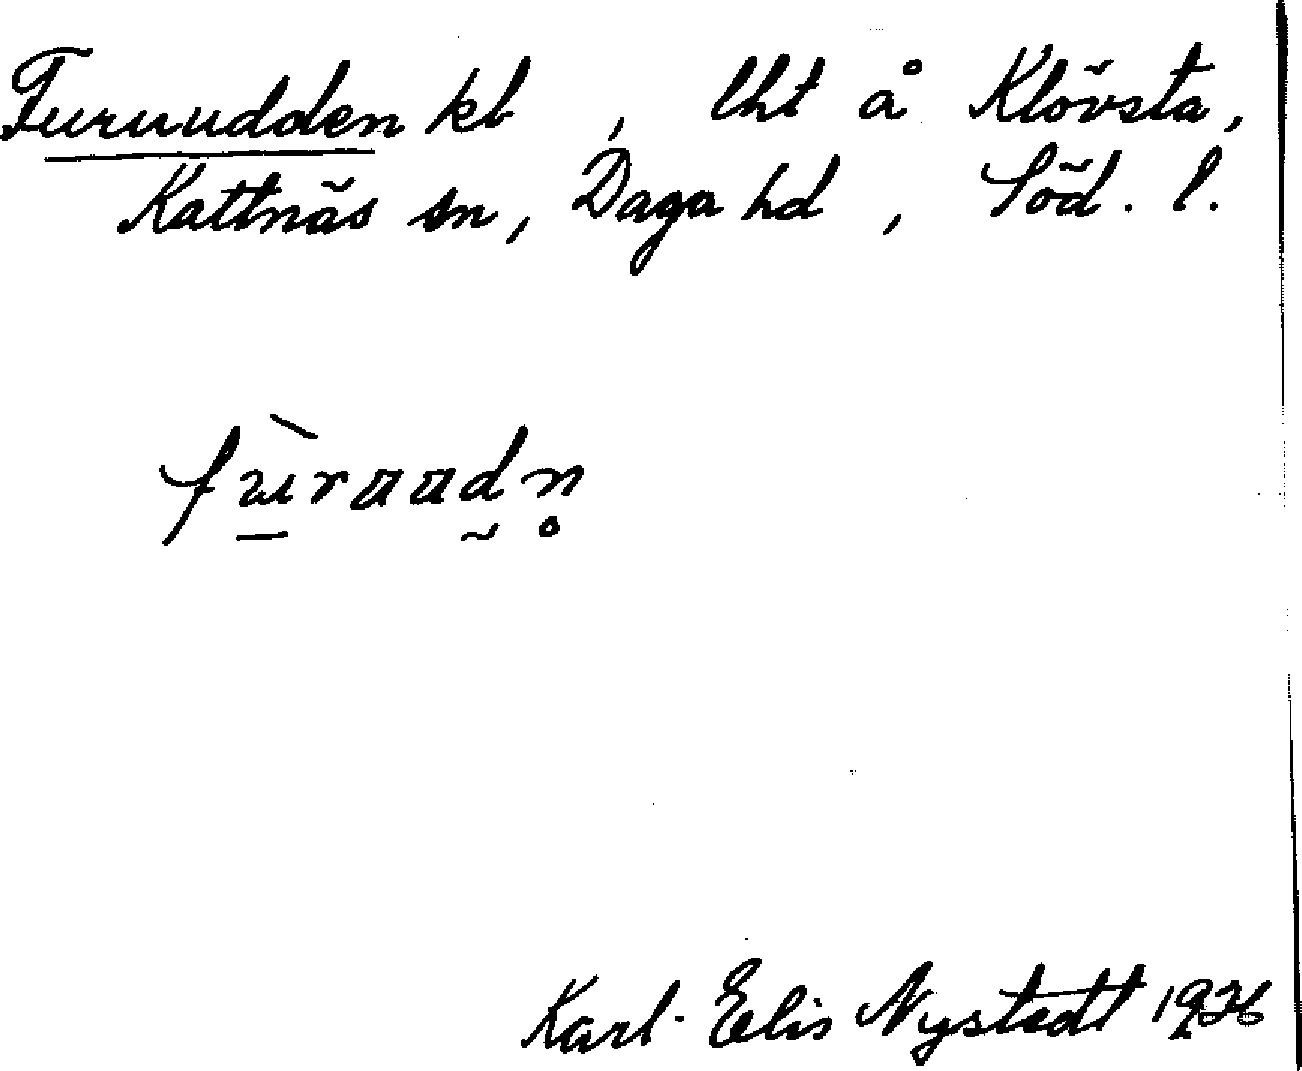 Furuudden kl, lht å Klövsta,
Kattnäs sn, Daga hd, Söd. l.
Karl-Elis Nystedt 1936